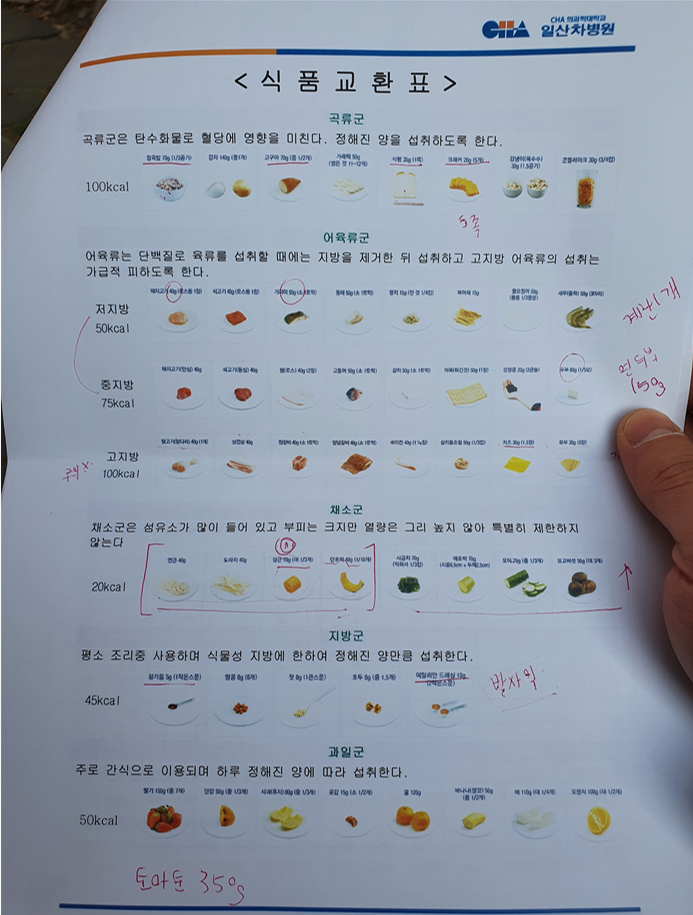 CHA 의과학대학교
CHA 일산차병원
<식품교환표>
곡류군
곡류군은 탄수화물로 혈당에 영향을 미친다. 정해진 양을 섭취하도록 한다.
잡곡밥 70g (1/3공기) 감자 140g (중1개) 고구마 70g (중 1/2개) 가래떡 50g 식빵 35g (1쪽) 크래커 20g (5개) 강냉이(옥수수) 30g (1.5공기) 콘플레이크 30g (3/4컵)
(썰은 것 11~12개)
100kcal
5쪽
어육류군
어육류는 단백질로 육류를 섭취할 때에는 지방을 제거한 뒤 섭취하고 고지방 어육류의 섭취는
가급적 피하도록 한다.
돼지고기 40g (로스용 1장) 쇠고기 40g (로스용 1장) 가자미 50g (소 1토막) 동태 50g (소 1토막) 멸치 15g (잔 것 1/4컵) 북어채 15g 물오징어 50g 새우(중하) 50g (3마리)
저지방
50kcal
계란 1개
돼지고기(안심) 40g 쇠고기(등심) 40g 햄(로스) 40g (2장) 고등어 50g (소 1토막) 갈치 50g (소 1토막) 어묵(튀긴것) 50g (1장) 검정콩 20g (2큰술) 두부 80g (1/5모)
중지방
75kcal
연두부
150g
닭고기(닭다리) 40g (1개) 삼겹살 40g 갈비 40g (소 1토막) 치즈 30g (1.5장) 유부 30g (5장)
고지방
100kcal
채소군
채소군은 섬유소가 많이 들어 있고 부피는 크지만 열량은 그리 높지 않아 특별히 제한하지
않는다
연근 40g 도라지 40g 당근 70g (대 1/3개) 단호박 40g (1/10개) 시금치 70g 애호박 70g 오이 70g (중 1/3개) 표고버섯 50g (대 3개)
(익혀서 1/3컵)
20kcal
지방군
평소 조리중 사용하며 식물성 지방에 한하여 정해진 양만큼 섭취한다.
참기름 5g (1작은스푼) 땅콩 8g (8개) 잣 8g (1큰스푼) 호두 8g (중 1.5개) 이탈리안 드레싱 10g
45kcal
과일군
주로 간식으로 이용되며 하루 정해진 양에 따라 섭취한다.
딸기 150g (중 7개) 단감 50g (중 1/3개) 사과(후지) 80g (중 1/3개) 곶감 15g (소 1/2개) 귤 120g 바나나(생것) 50g 배 110g (대 1/4개) 오렌지 100g (대 1/2개)
(중 1/2개)
50kcal
토마토 350g